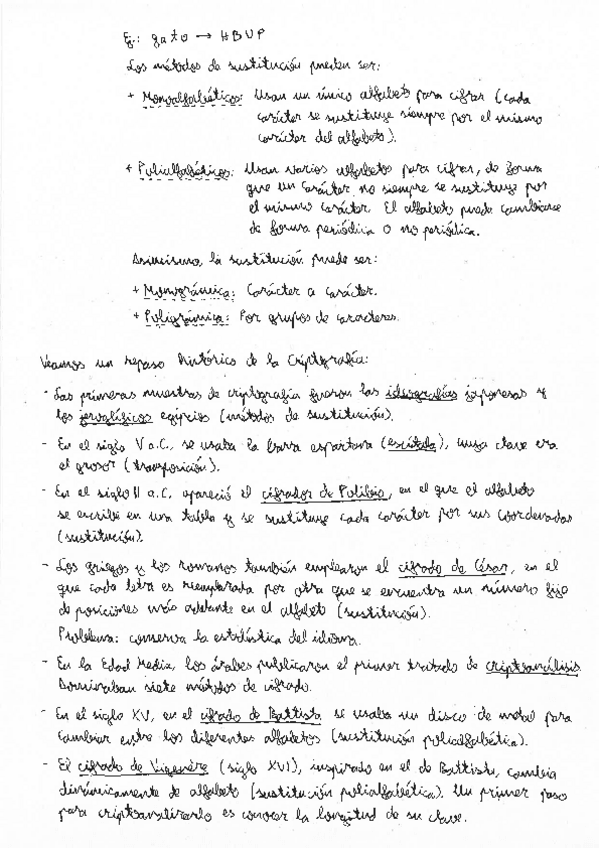 Ej.: gato → HBUP
Los métodos de sustitución pueden ser:
+ Monoalfabéticos: Usan un único alfabeto para cifrar (cada
carácter se sustituye siempre por el mismo
carácter del alfabeto).
+ Polialfabéticos: Usan varios alfabetos para cifrar, de forma
que un carácter no siempre se sustituye por
el mismo carácter. El alfabeto puede cambiarse
de forma periódica o no periódica.
Asimismo, la sustitución puede ser:
+ Monográmica: Carácter a carácter.
+ Poligrámica: Por grupos de caracteres.
Veamos un repaso histórico de la Criptografía:
- Las primeras muestras de criptografía fueron las ideografías japonesas y
los jeroglíficos egipcios (métodos de sustitución).
- En el siglo V a.C., se usaba la barra espartana (escítala), cuya clave era
el grosor (transposición).
- En el siglo II a.C. apareció el cifrador de Polibio, en el que el alfabeto
se escribe en una tabla y se sustituye cada carácter por sus coordenadas
(sustitución).
- Los griegos y los romanos también emplearon el cifrado de César, en el
que cada letra es reemplazada por otra que se encuentra un número fijo
de posiciones más adelante en el alfabeto (sustitución).
Problema: conserva la estadística del idioma.
- En la Edad Media, los árabes publicaron el primer tratado de criptoanálisis.
Dominaban siete métodos de cifrado.
- En el siglo XV, en el cifrado de Battista se usaba un disco de metal para
cambiar entre los diferentes alfabetos (sustitución polialfabética).
- El cifrado de Vigenère (siglo XVI), inspirado en el de Battista, cambia
dinámicamente de alfabeto (sustitución polialfabética). Un primer paso
para criptoanalizarlo es conocer la longitud de su clave.